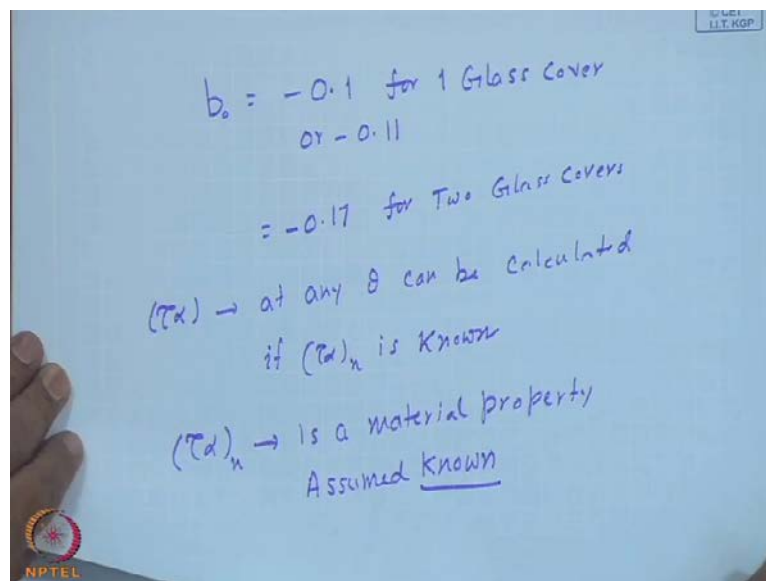 © CET
I.I.T. KGP
b₀ = -0.1 for 1 Glass Cover
or -0.11
= -0.17 for Two Glass Covers
(τα) → at any θ can be calculated
if (τα)ₙ is known
(τα)ₙ → is a material property
Assumed Known
NPTEL